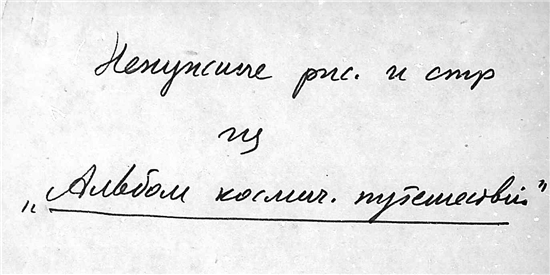 Ненужные рис. и стр
из
„Альбом космич. путешествий"